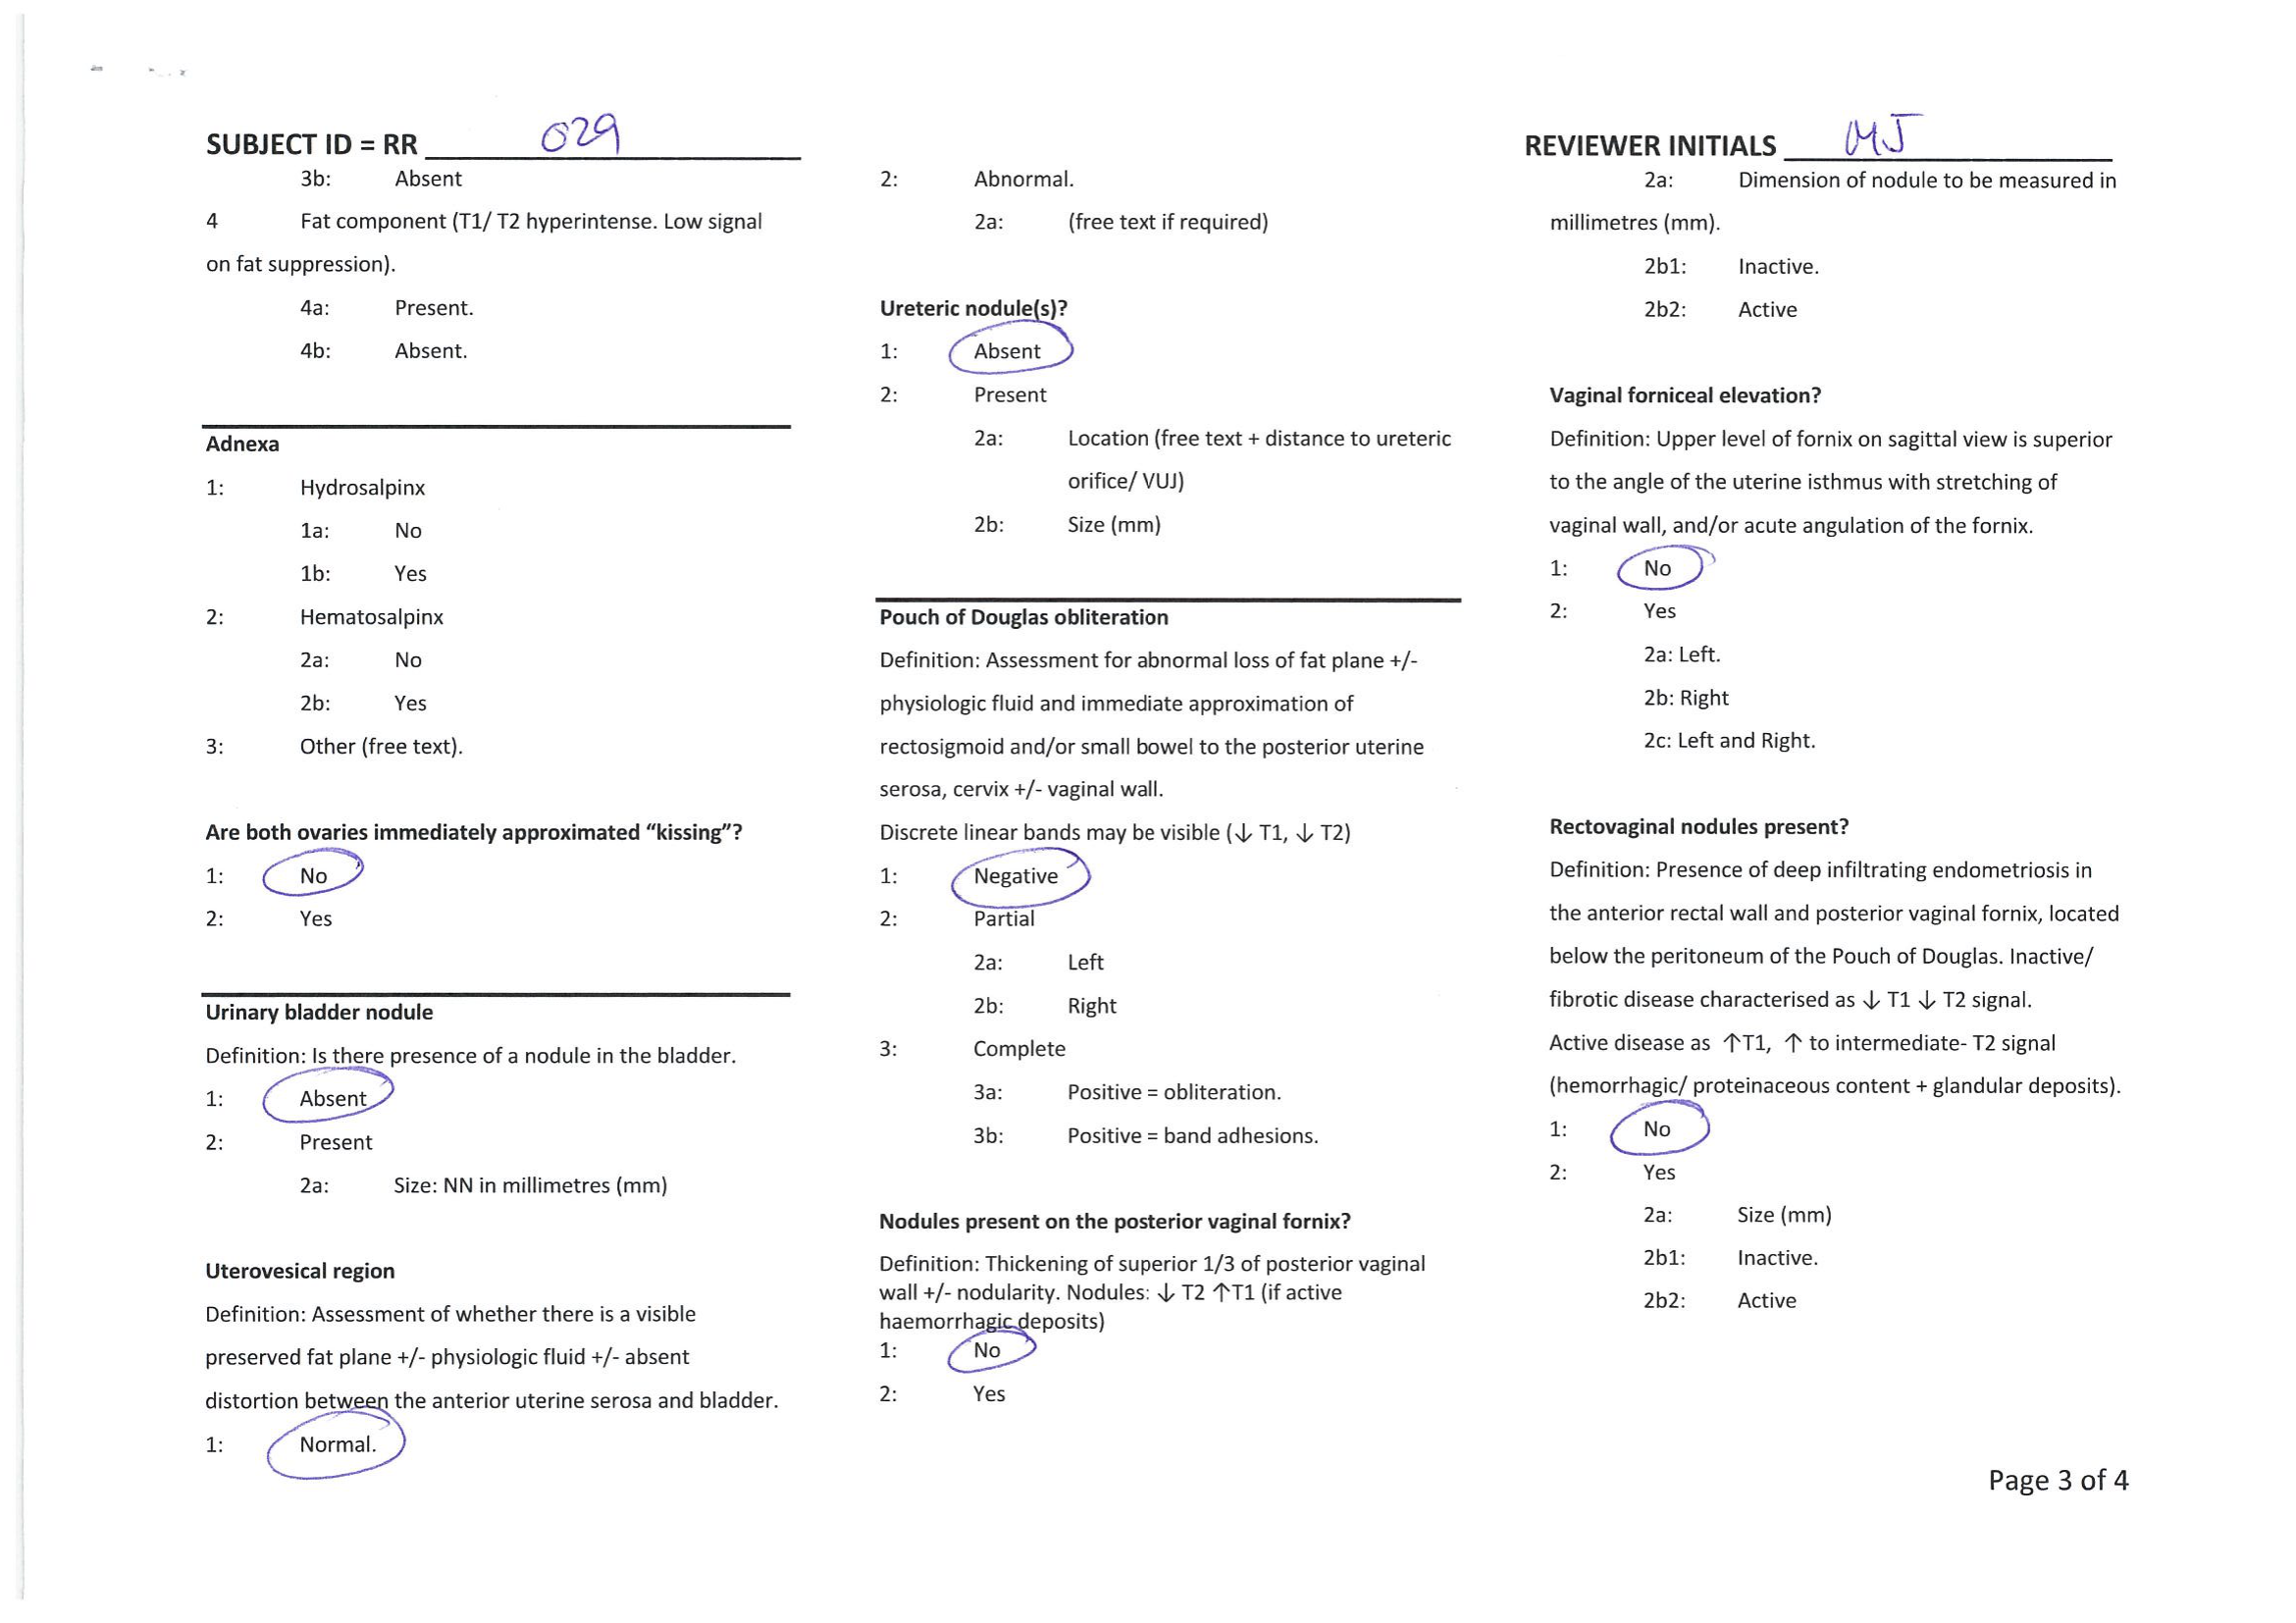 SUBJECT ID = RR 029
3b: Absent
4 Fat component (T1/ T2 hyperintense. Low signal
on fat suppression).
4a: Present.
4b: Absent.
Adnexa
1: Hydrosalpinx
1a: No
1b: Yes
2: Hematosalpinx
2a: No
2b: Yes
3: Other (free text).
Are both ovaries immediately approximated “kissing”?
1: No
2: Yes
Urinary bladder nodule
Definition: Is there presence of a nodule in the bladder.
1: Absent
2: Present
2a: Size: NN in millimetres (mm)
Uterovesical region
Definition: Assessment of whether there is a visible
preserved fat plane +/- physiologic fluid +/- absent
distortion between the anterior uterine serosa and bladder.
1: Normal.
2: Abnormal.
2a: (free text if required)
Ureteric nodule(s)?
1: Absent
2: Present
2a: Location (free text + distance to ureteric
orifice/ VUJ)
2b: Size (mm)
Pouch of Douglas obliteration
Definition: Assessment for abnormal loss of fat plane +/-
physiologic fluid and immediate approximation of
rectosigmoid and/or small bowel to the posterior uterine
serosa, cervix +/- vaginal wall.
Discrete linear bands may be visible (↓ T1, ↓ T2)
1: Negative
2: Partial
2a: Left
2b: Right
3: Complete
3a: Positive = obliteration.
3b: Positive = band adhesions.
Nodules present on the posterior vaginal fornix?
Definition: Thickening of superior 1/3 of posterior vaginal
wall +/- nodularity. Nodules: ↓ T2 ↑T1 (if active
haemorrhagic deposits)
1: No
2: Yes
REVIEWER INITIALS MJ
2a: Dimension of nodule to be measured in
millimetres (mm).
2b1: Inactive.
2b2: Active
Vaginal forniceal elevation?
Definition: Upper level of fornix on sagittal view is superior
to the angle of the uterine isthmus with stretching of
vaginal wall, and/or acute angulation of the fornix.
1: No
2: Yes
2a: Left.
2b: Right
2c: Left and Right.
Rectovaginal nodules present?
Definition: Presence of deep infiltrating endometriosis in
the anterior rectal wall and posterior vaginal fornix, located
below the peritoneum of the Pouch of Douglas. Inactive/
fibrotic disease characterised as ↓ T1 ↓ T2 signal.
Active disease as ↑T1, ↑ to intermediate- T2 signal
(hemorrhagic/ proteinaceous content + glandular deposits).
1: No
2: Yes
2a: Size (mm)
2b1: Inactive.
2b2: Active
Page 3 of 4